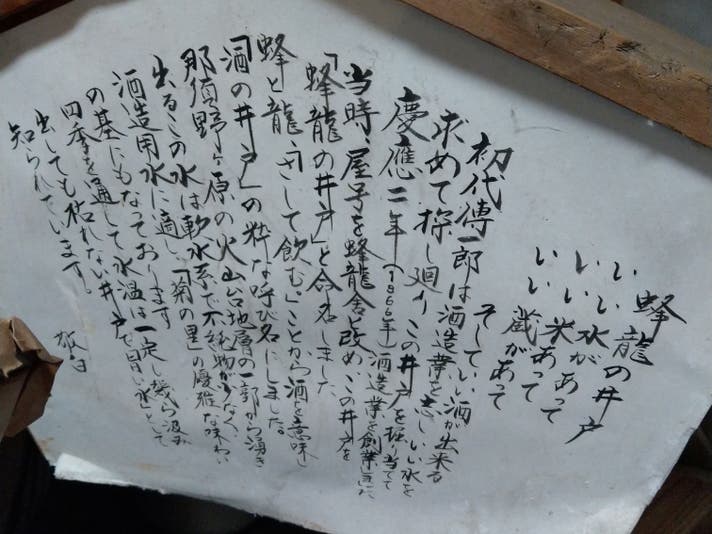 蜂龍の井戸
いい水があって
いい米あって
いい蔵があって
そしていい酒が出来る
初代傳一郎は酒造業を志しいい水を
求めて探し廻りこの井戸を掘り当てて
慶應二年(1866年)酒造業を創業した
当時、屋号を蜂龍舎と改め、この井戸を
「蜂龍の井戸」と命名しました
蜂と龍「さして飲む」ことから酒を意味し
「酒の井戸」の粋な呼び名にしました。
那須野ヶ原の火山台地層の一部から湧き
出るこの水は軟水系で不純物が少なく
酒造用水に適し、「菊の里」の優雅な味わい
の基にもなっております
四季を通して水温は一定し幾ら汲み
出しても枯れない井戸を旨い水」として
知られています。
敬白